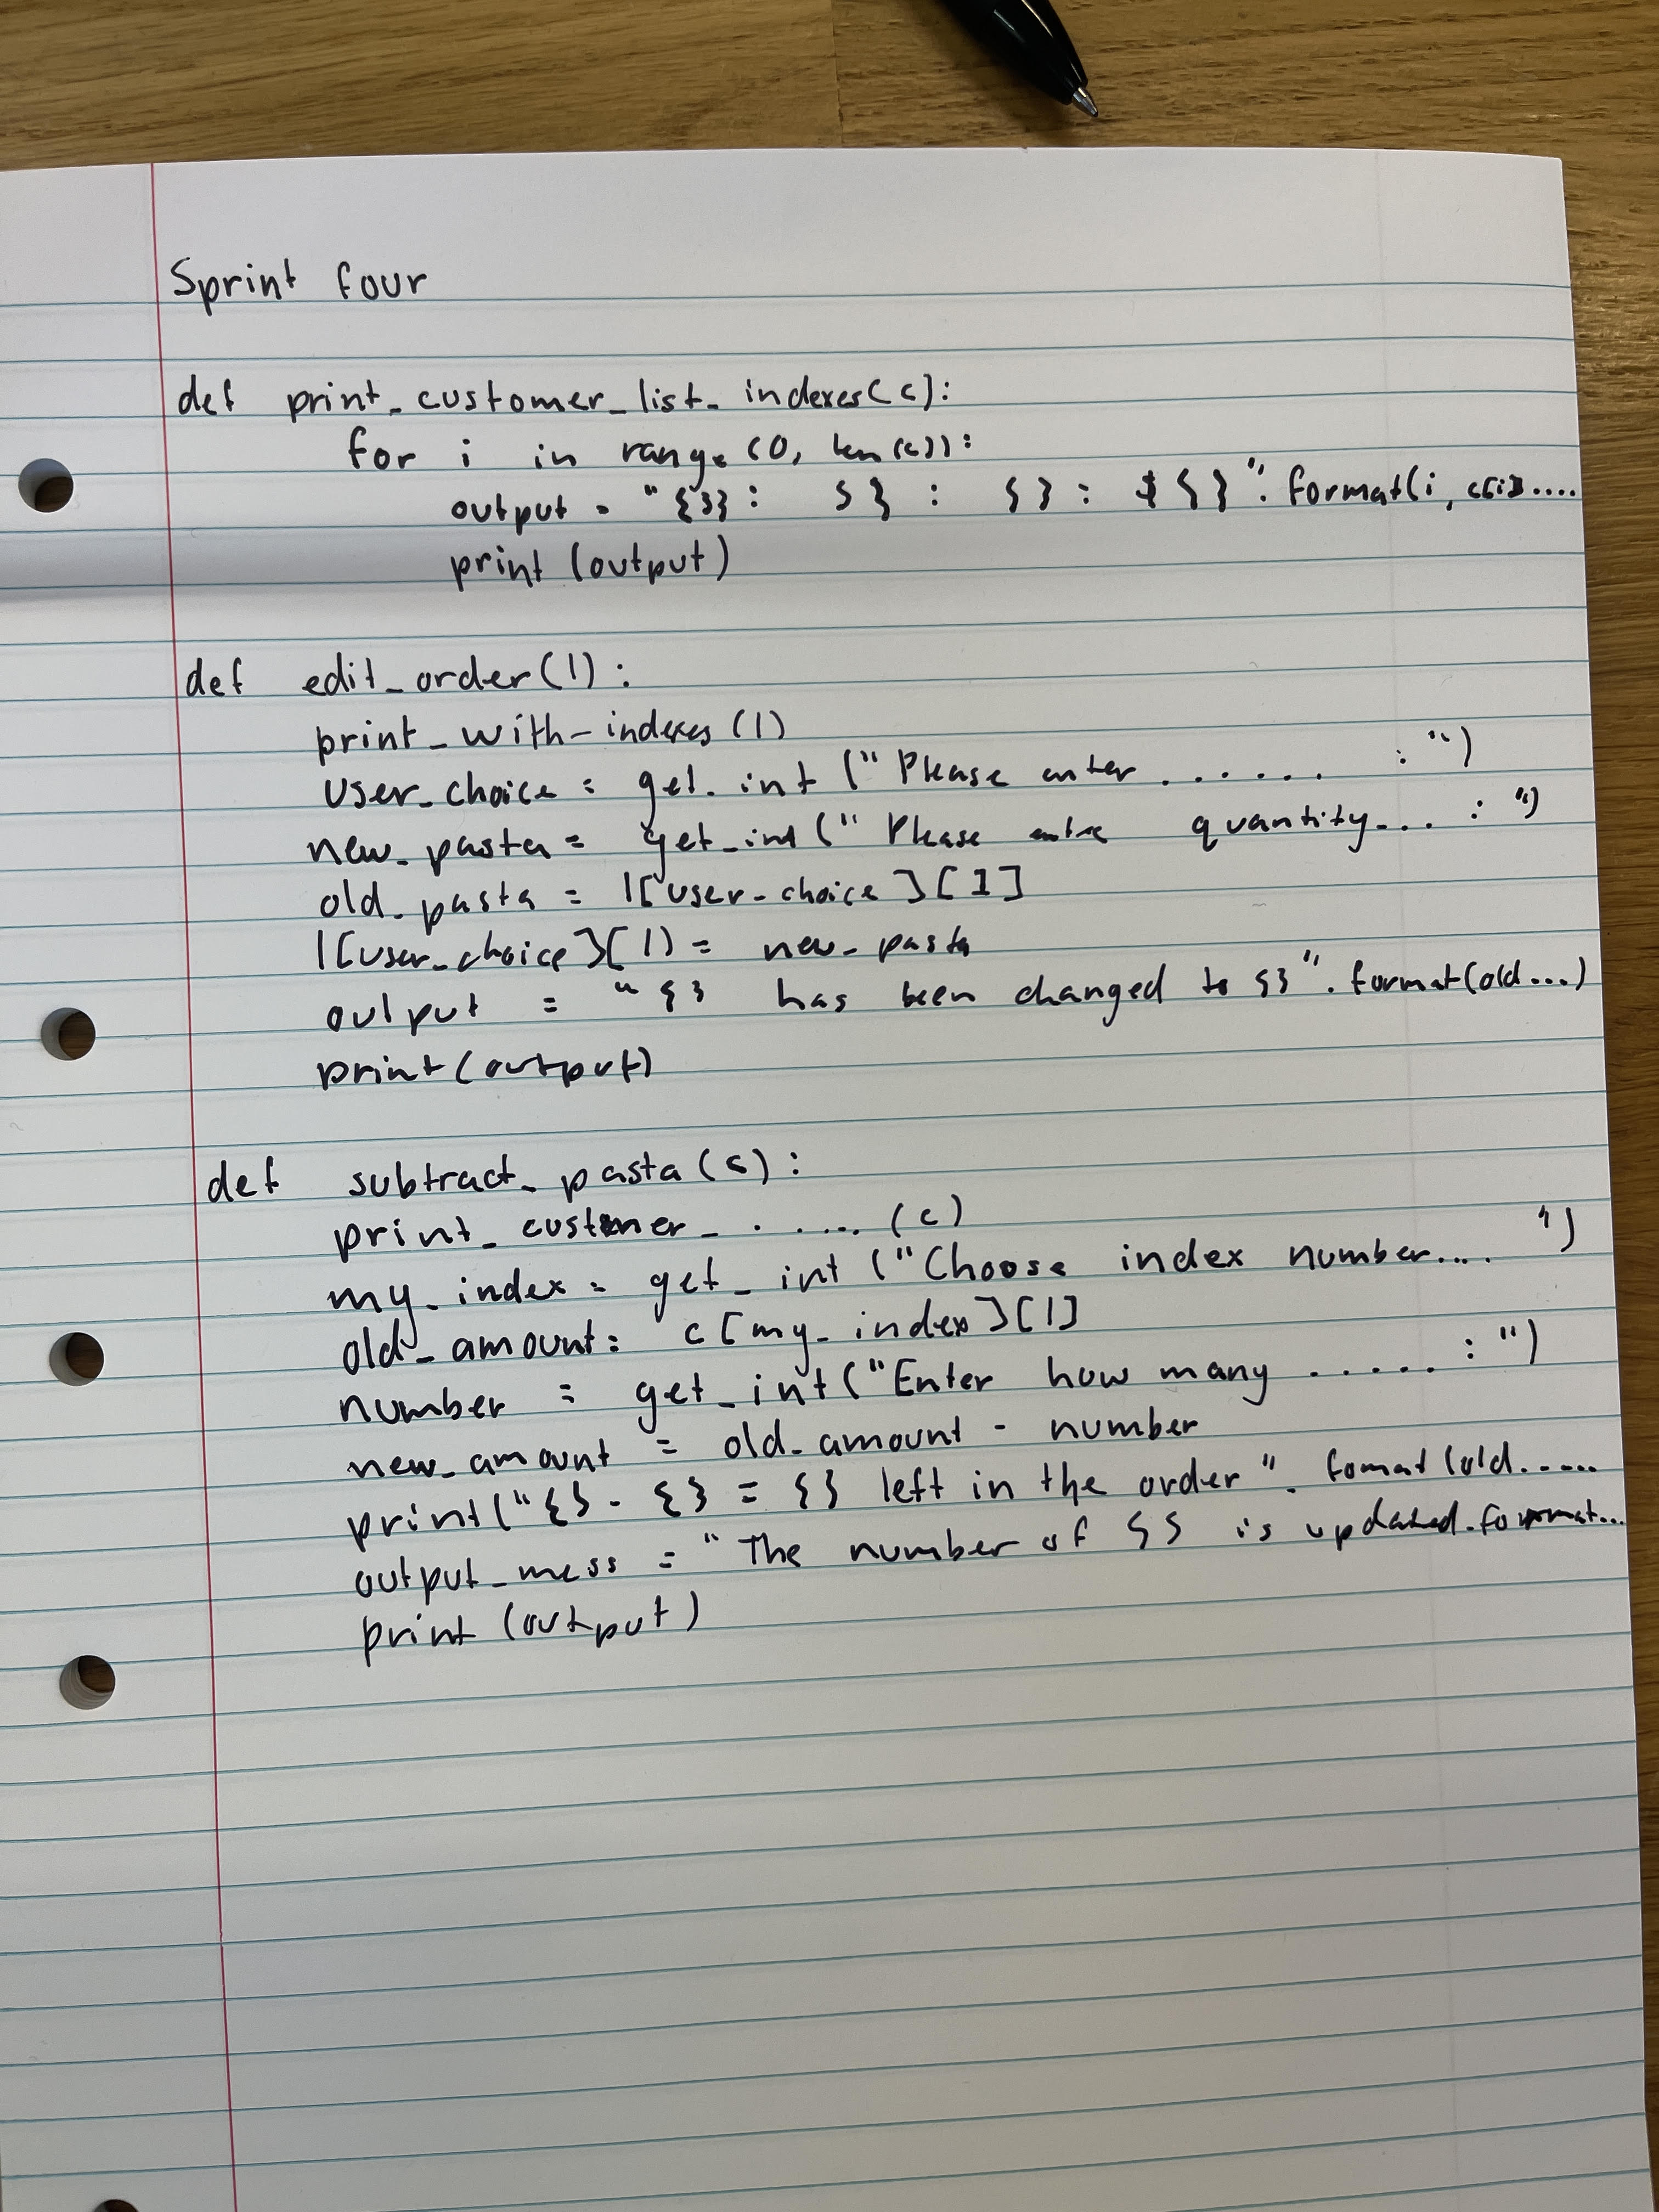 Sprint four
def print_customer_list_indexes(c):
for i in range (0, len(c)):
output = "{}}: {} : {} : ${}". format(i, c[i]....
print (output)
def edit_order(l):
print_with_indexes (l)
user_choice = get_int ("Please enter ...... : ")
new_pasta = get_int (" Please entre quantity... : ")
old_pasta = l[user_choice][1]
l[user_choice][1) = new_pasta
output = "{} has been changed to {}". format(old...)
print(output)
def subtract_pasta(c):
print_customer_ ...... (c)
my_index = get_int ("Choose index number.... ")
old_amount= c[my_index][1]
number = get_int("Enter how many ...... : ")
new_amount = old_amount - number
print("{} - {} = {} left in the order". fomat(old......
output_mess = "The number of {} is updated.format...
print (output)